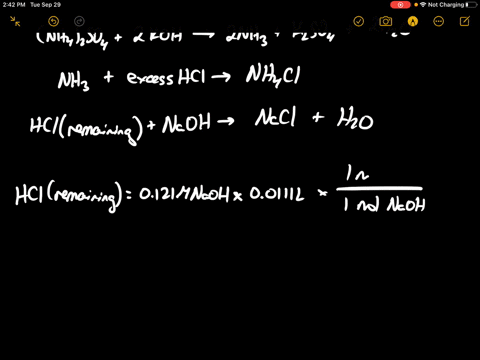 2:42 PM Tue Sep 29
Not Charging
(NH4)2SO4 + 2 KOH → 2NH3 + K2SO4
NH3 + excess HCl → NH4Cl
HCl (remaining) + NaOH → NaCl + H2O
HCl (remaining) = 0.121M NaOH × 0.0111L × 1 / 1 mol NaOH